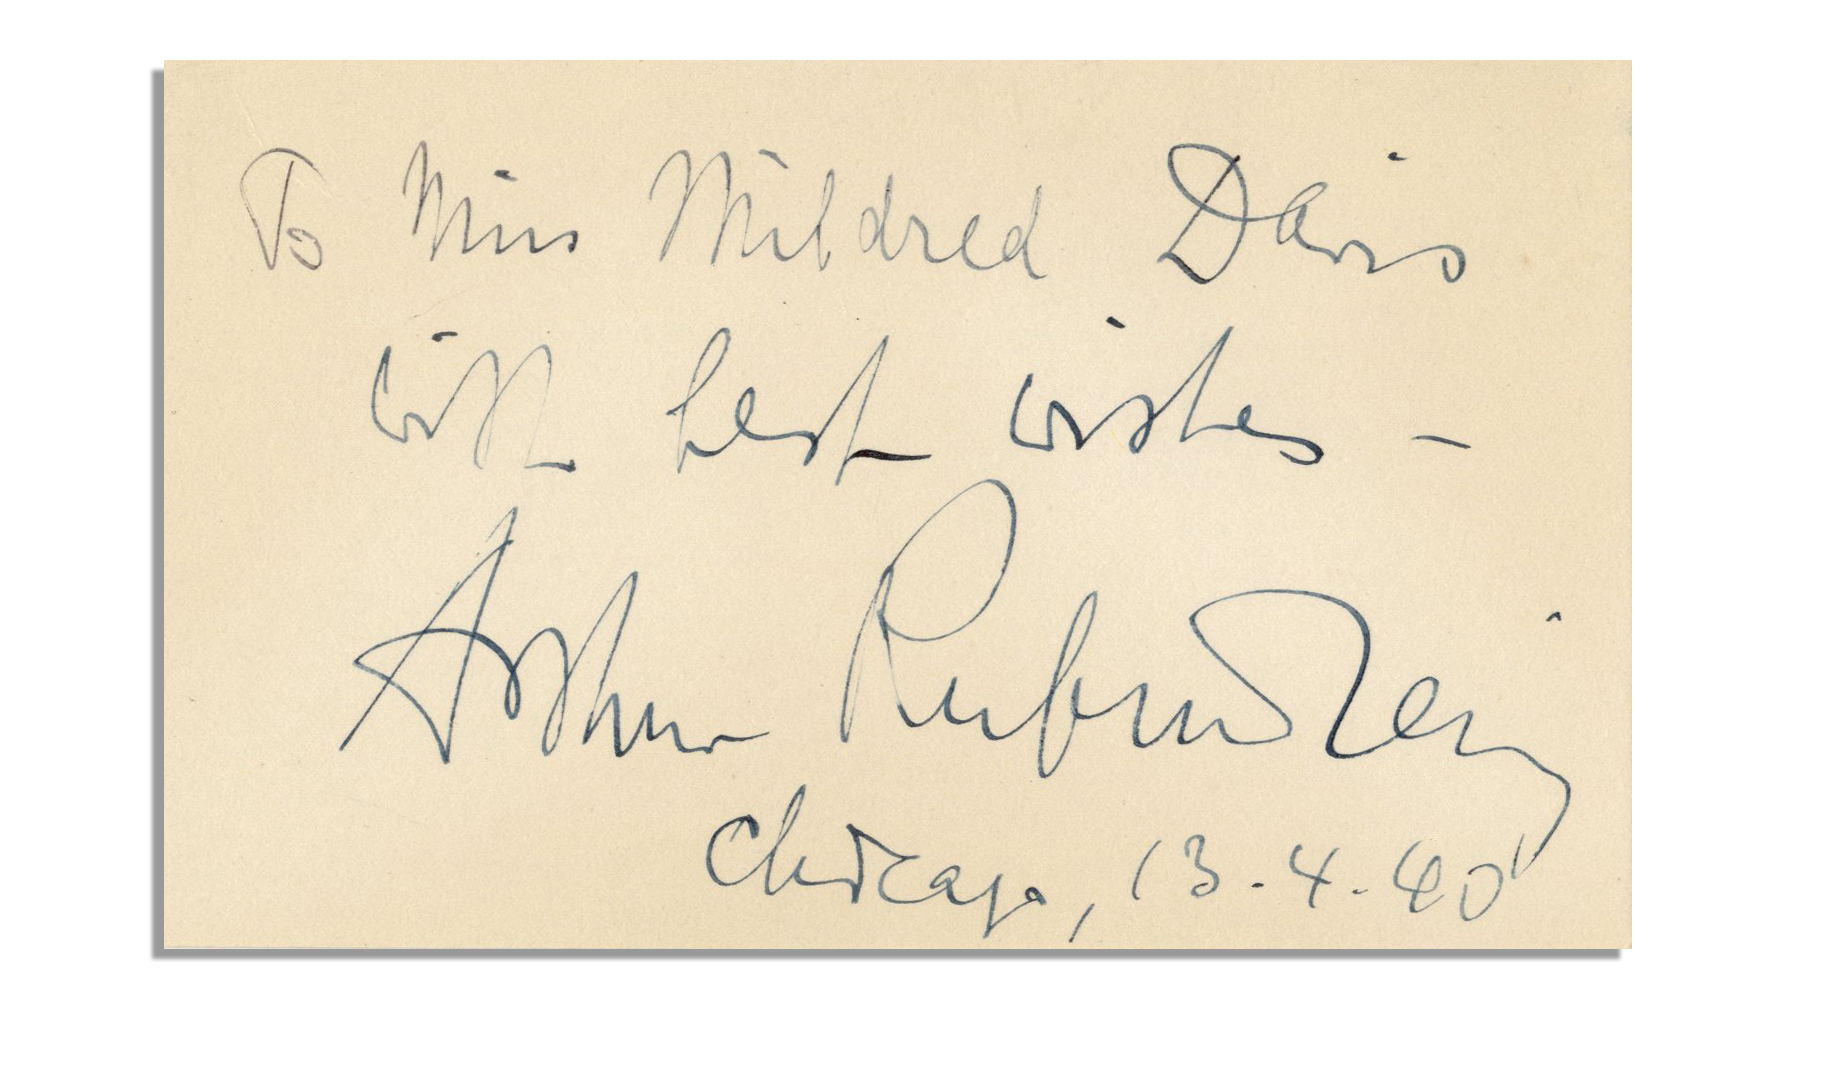 To Miss Mildred Davis
with best wishes –
Arthur Rubinstein
Chicago, 13.4.40